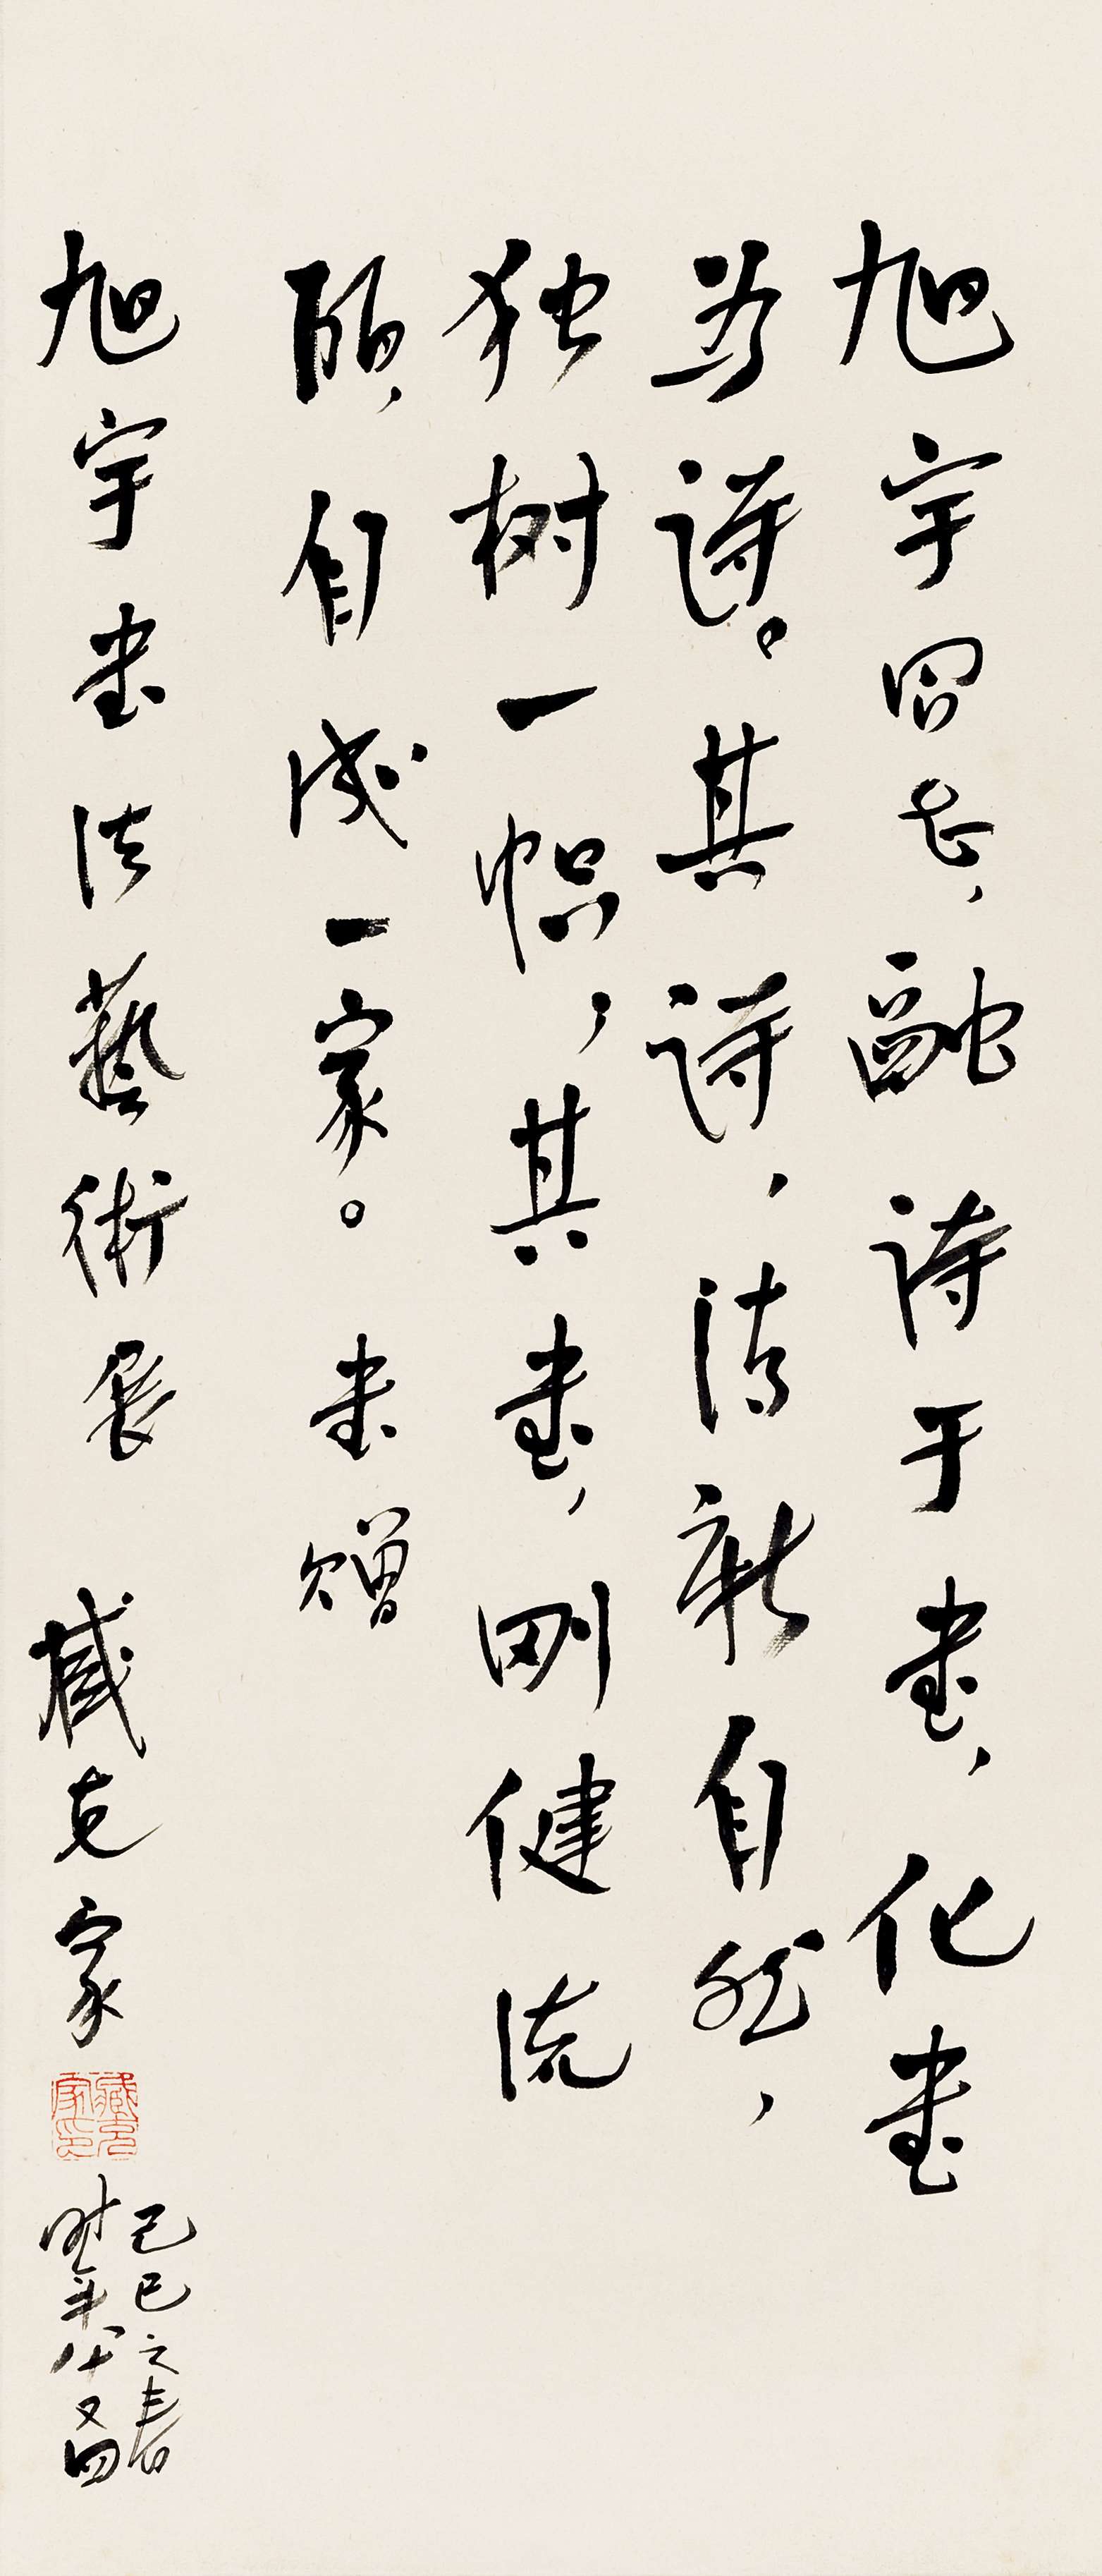 旭宇同志，融诗于書，化書
为诗。其诗，清新自然，
独树一帜，其書，刚健流
丽，自成一家。書赠
旭宇書法藝術展 臧克家
臧克家印
己巳之春
时年八十又四